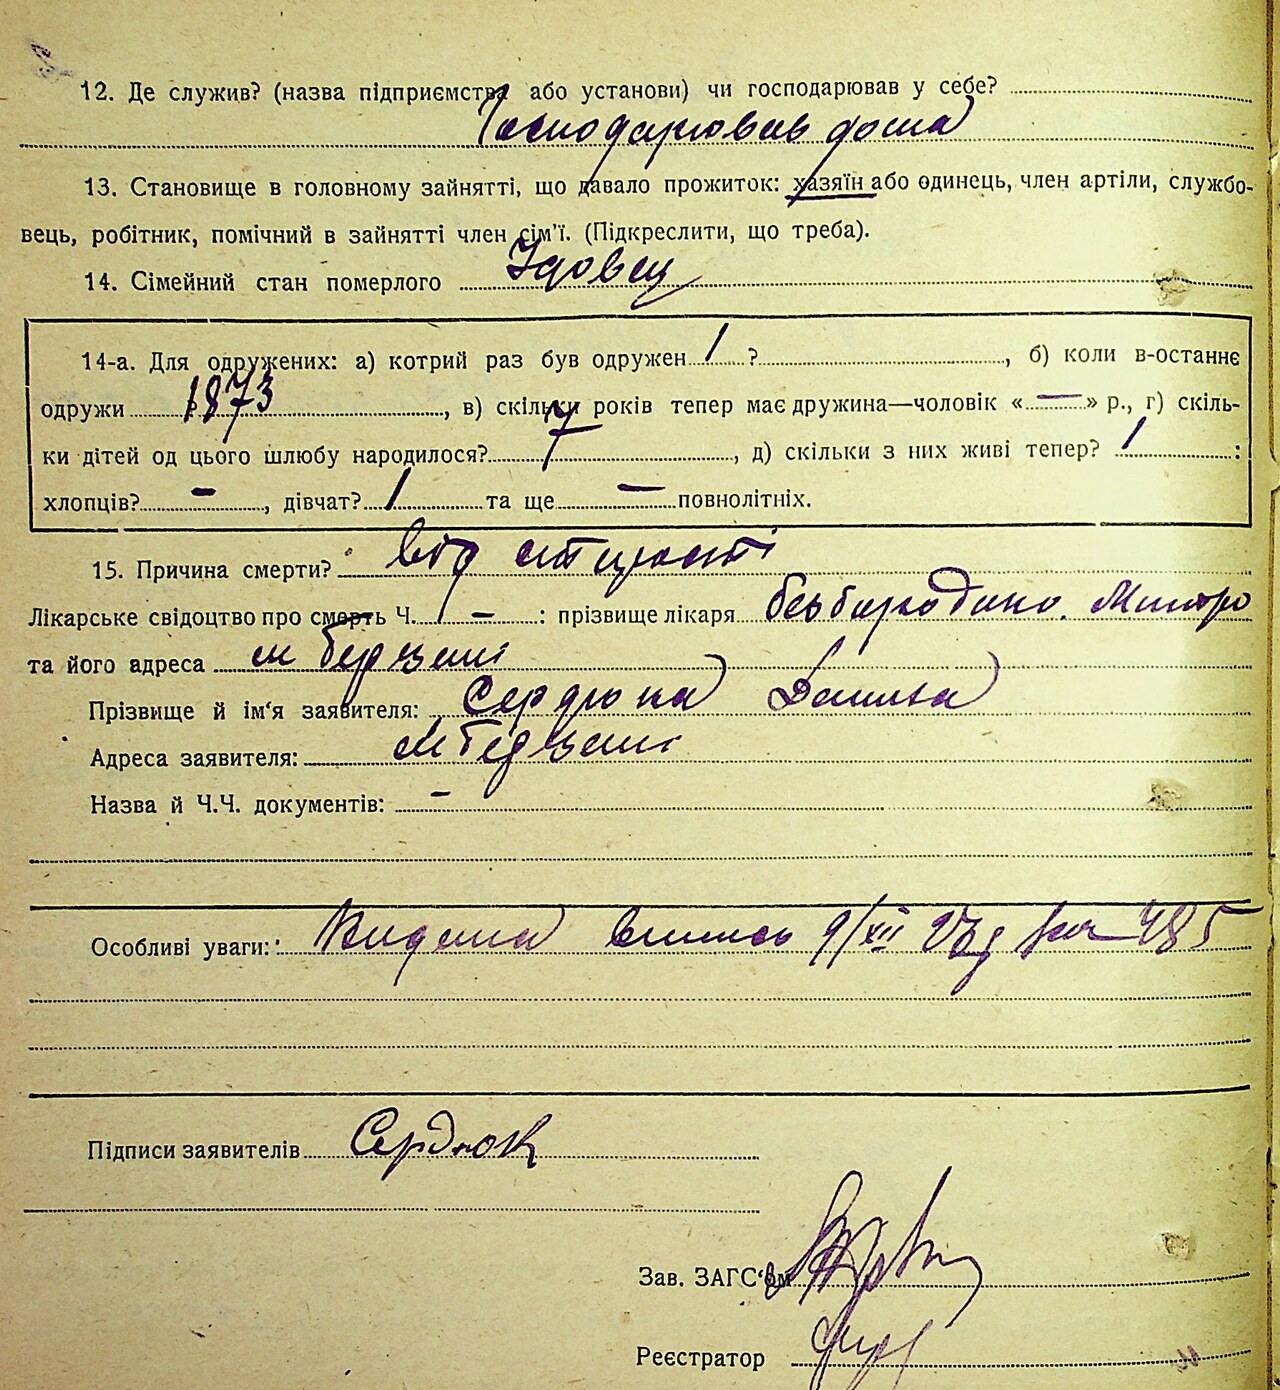 12. Де служив? (назва підприємства або установи) чи господарював у себе?
Господарював дома
13. Становище в головному зайнятті, що давало прожиток: хазяїн або одинець, член артіли, службо-
вець, робітник, помічний в зайнятті член сім'ї. (Підкреслити, що треба).
14. Сімейний стан померлого Удовец
14-а. Для одружених: а) котрий раз був одружен 1 ? , б) коли в-останнє
одружи 1873 , в) скільки років тепер має дружина—чоловік «—» р., г) скіль-
ки дітей од цього шлюбу народилося? 7 , д) скільки з них живі тепер? 1 :
хлопців? – , дівчат? 1 та ще – повнолітніх.
15. Причина смерти? від старості
Лікарське свідоцтво про смерть Ч. – : прізвище лікаря
та його адреса м
Прізвище й ім'я заявителя: Сердюка
Адреса заявителя: м
Назва й Ч.Ч. документів: –
Особливі уваги: Видана 9/XII 485
Підписи заявителів Сердюк
Зав. ЗАГС'ом
Реєстратор